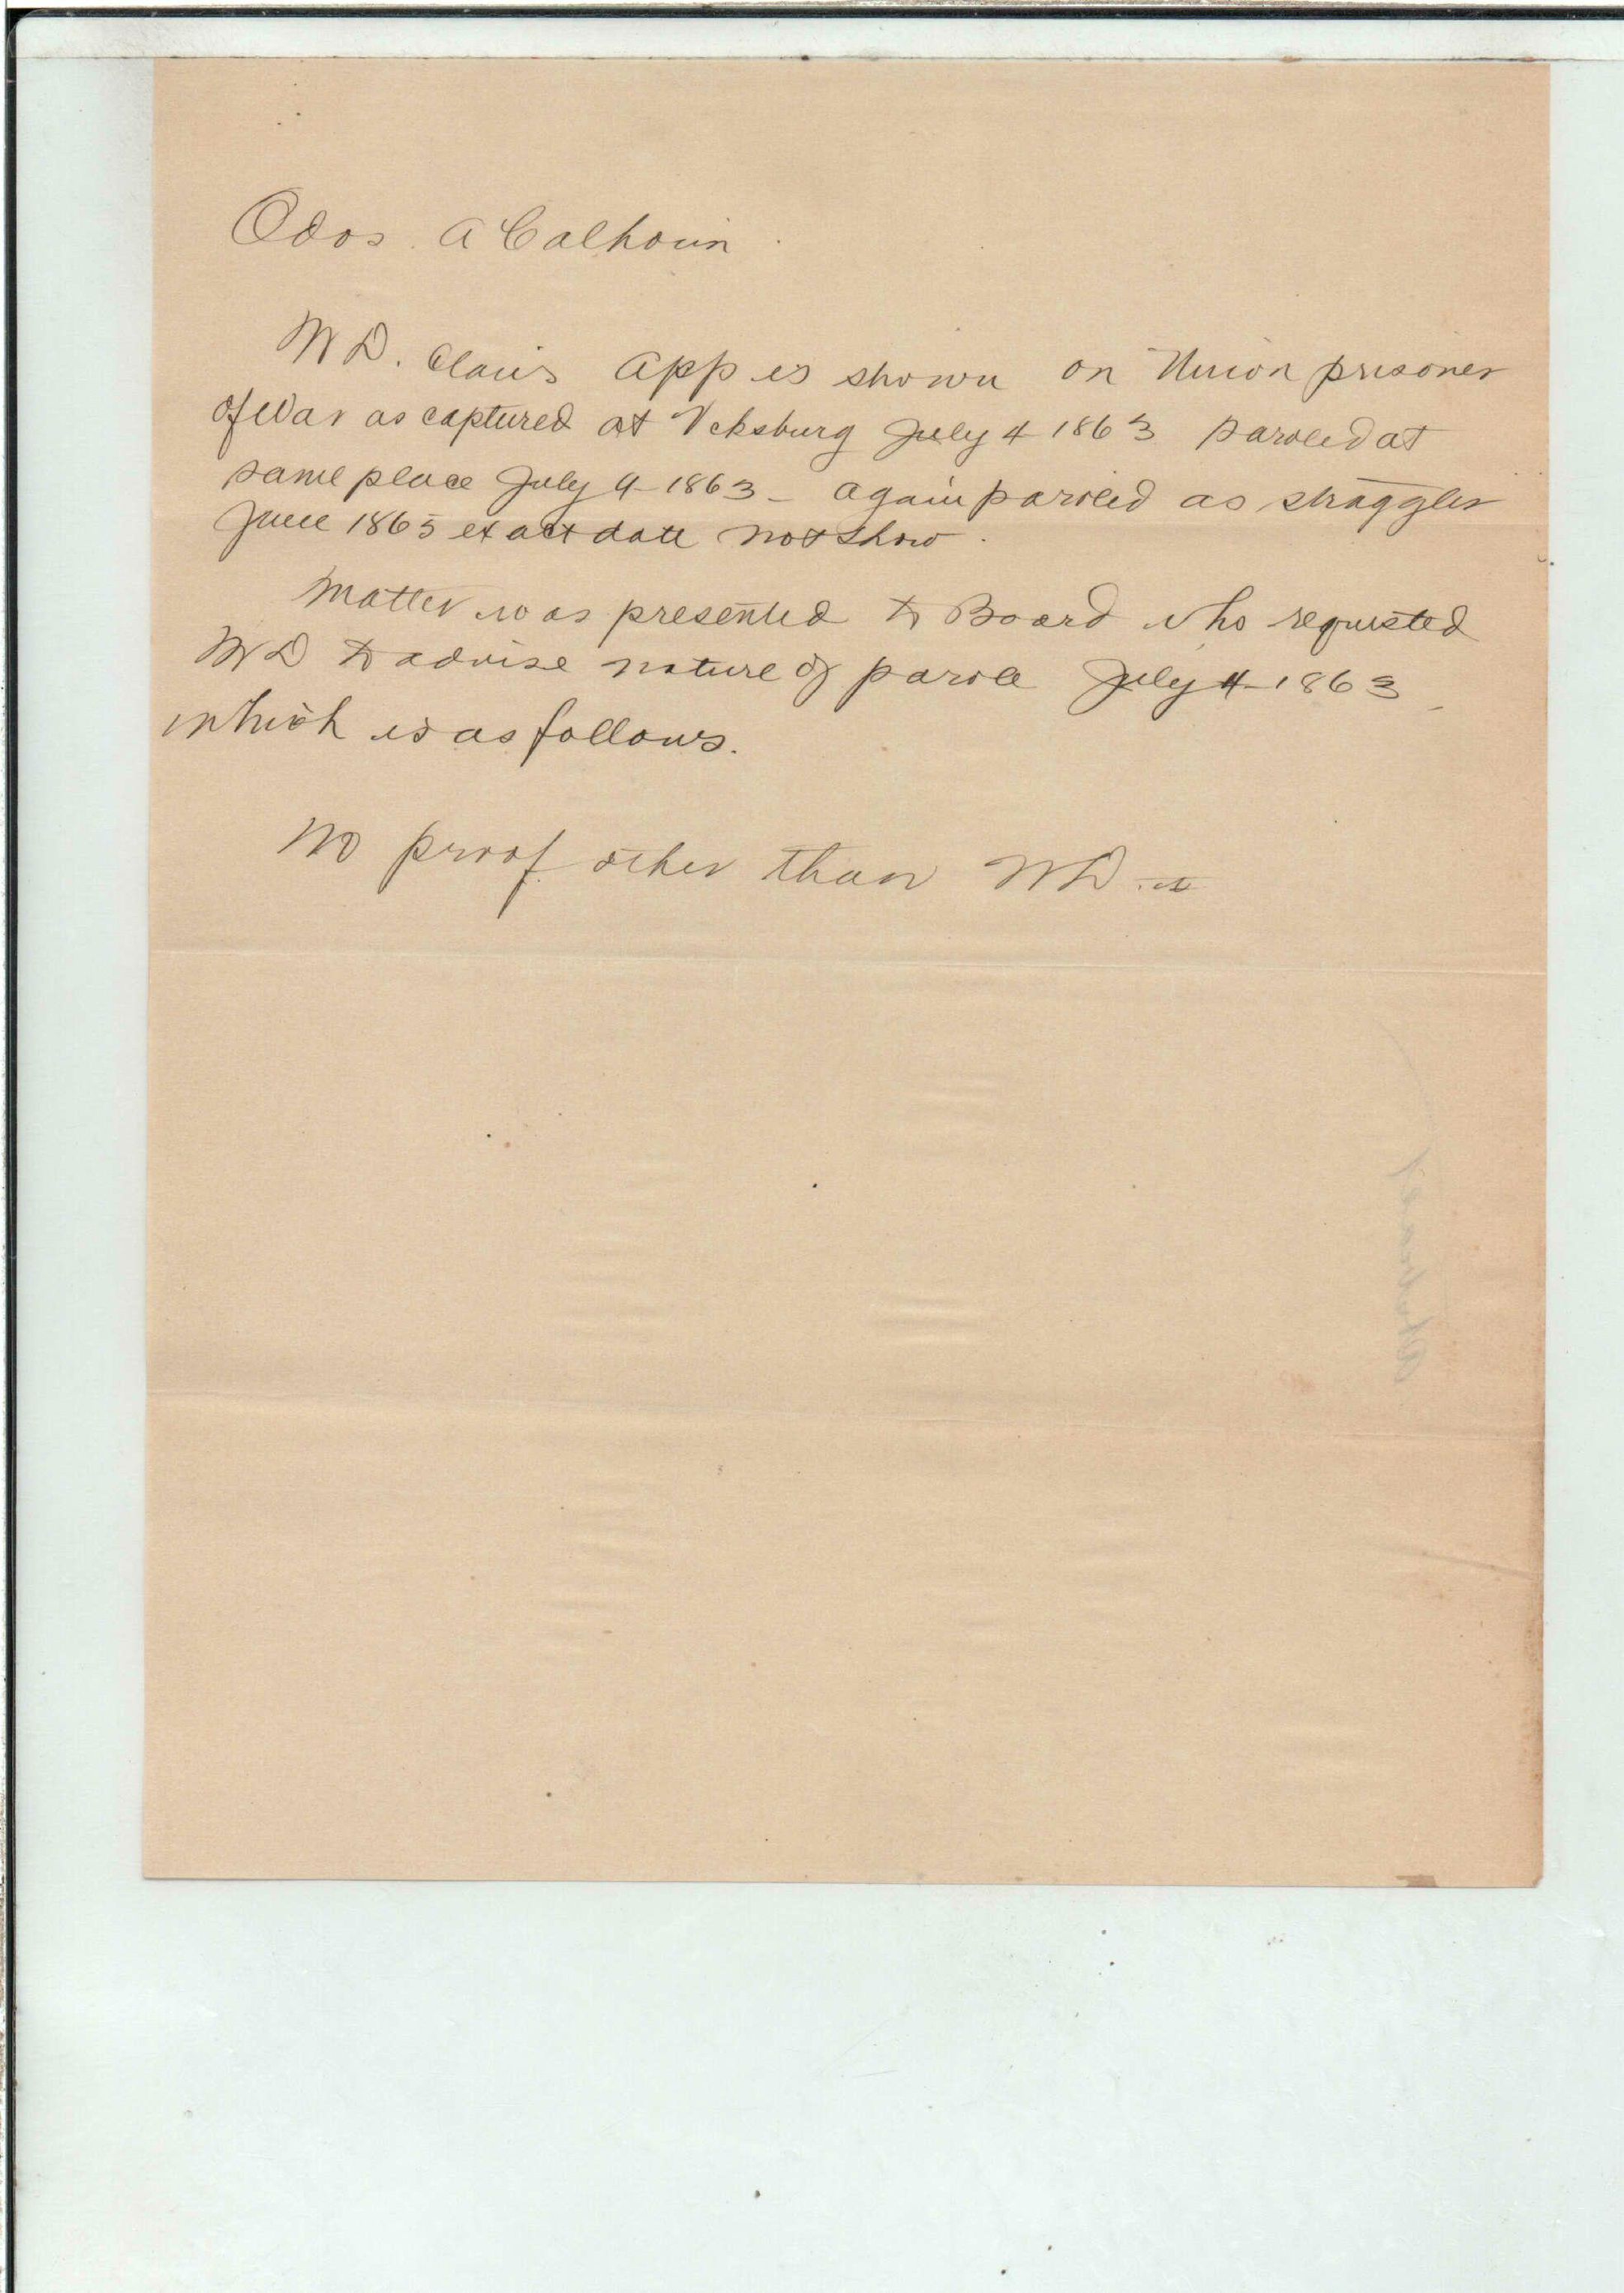 Odos. A Calhoun
W D. Claims App is shown on Union prisoner
of War as captured at Vcksburg July 4 1863 paroled at
same place July 9 1863 - again paroled as straggler
June 1865 exact date not show.
Matter was presented to Board who requested
W D to advise nature of parole July 4 1863
which is as follows.
No proof other than W D